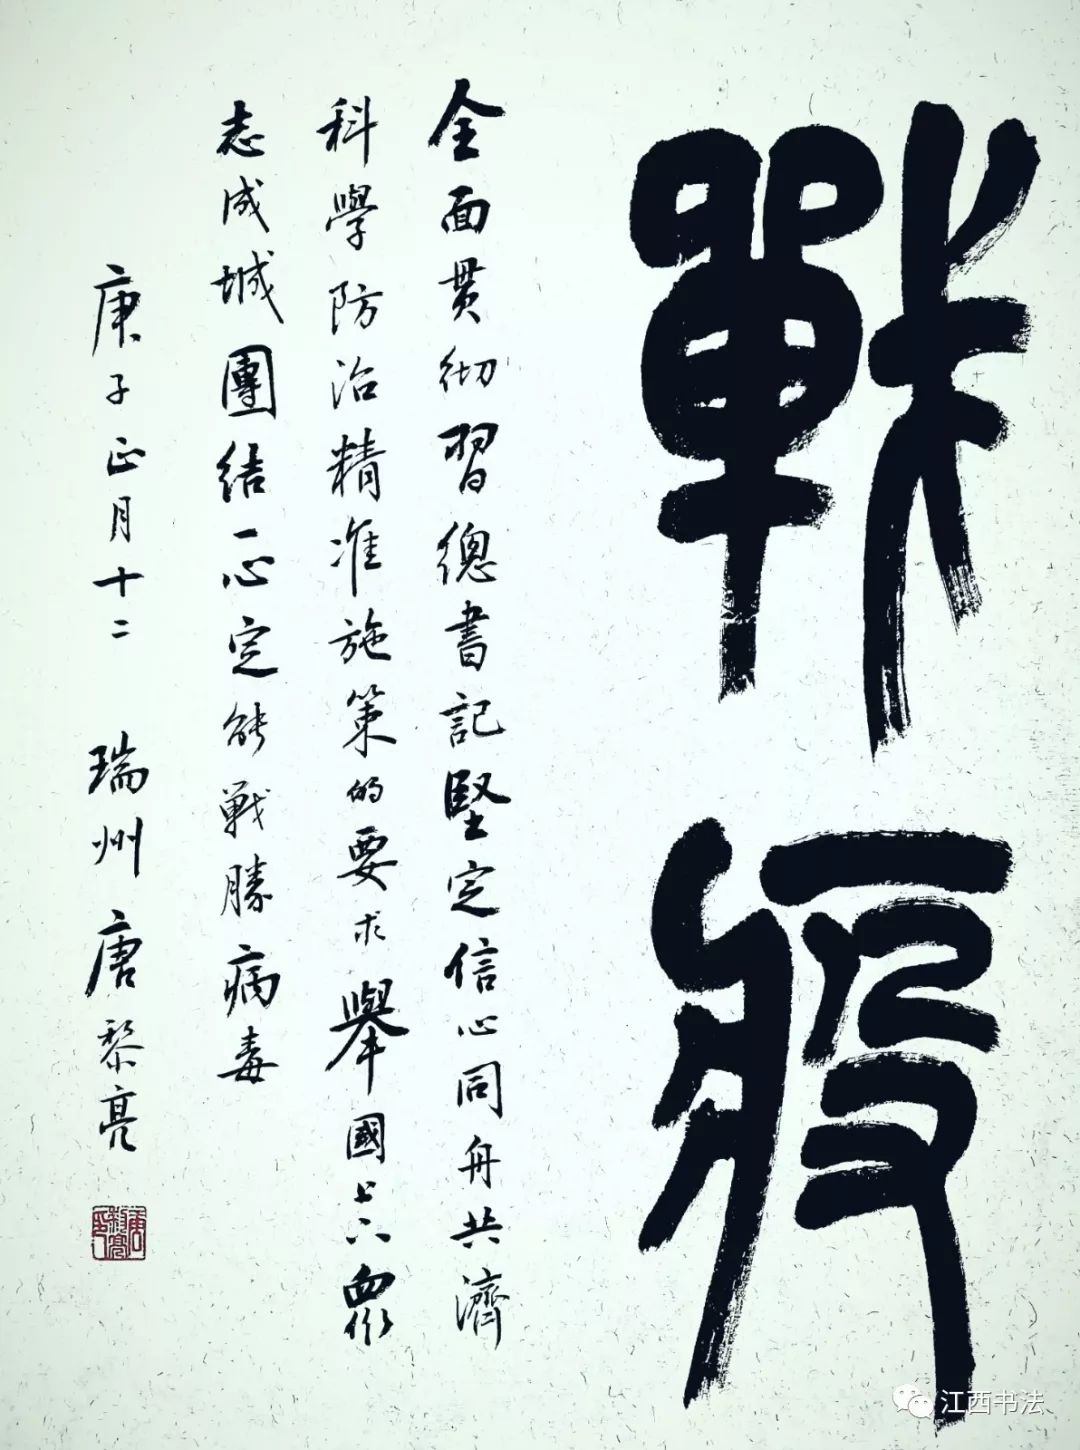 戰疫
全面贯彻習總書記堅定信心同舟共濟
科學防治精准施策的要求舉國上下衆
志成城團结一心定能戰勝病毒
庚子正月十二 瑞州唐黎亮
唐黎亮印
江西书法